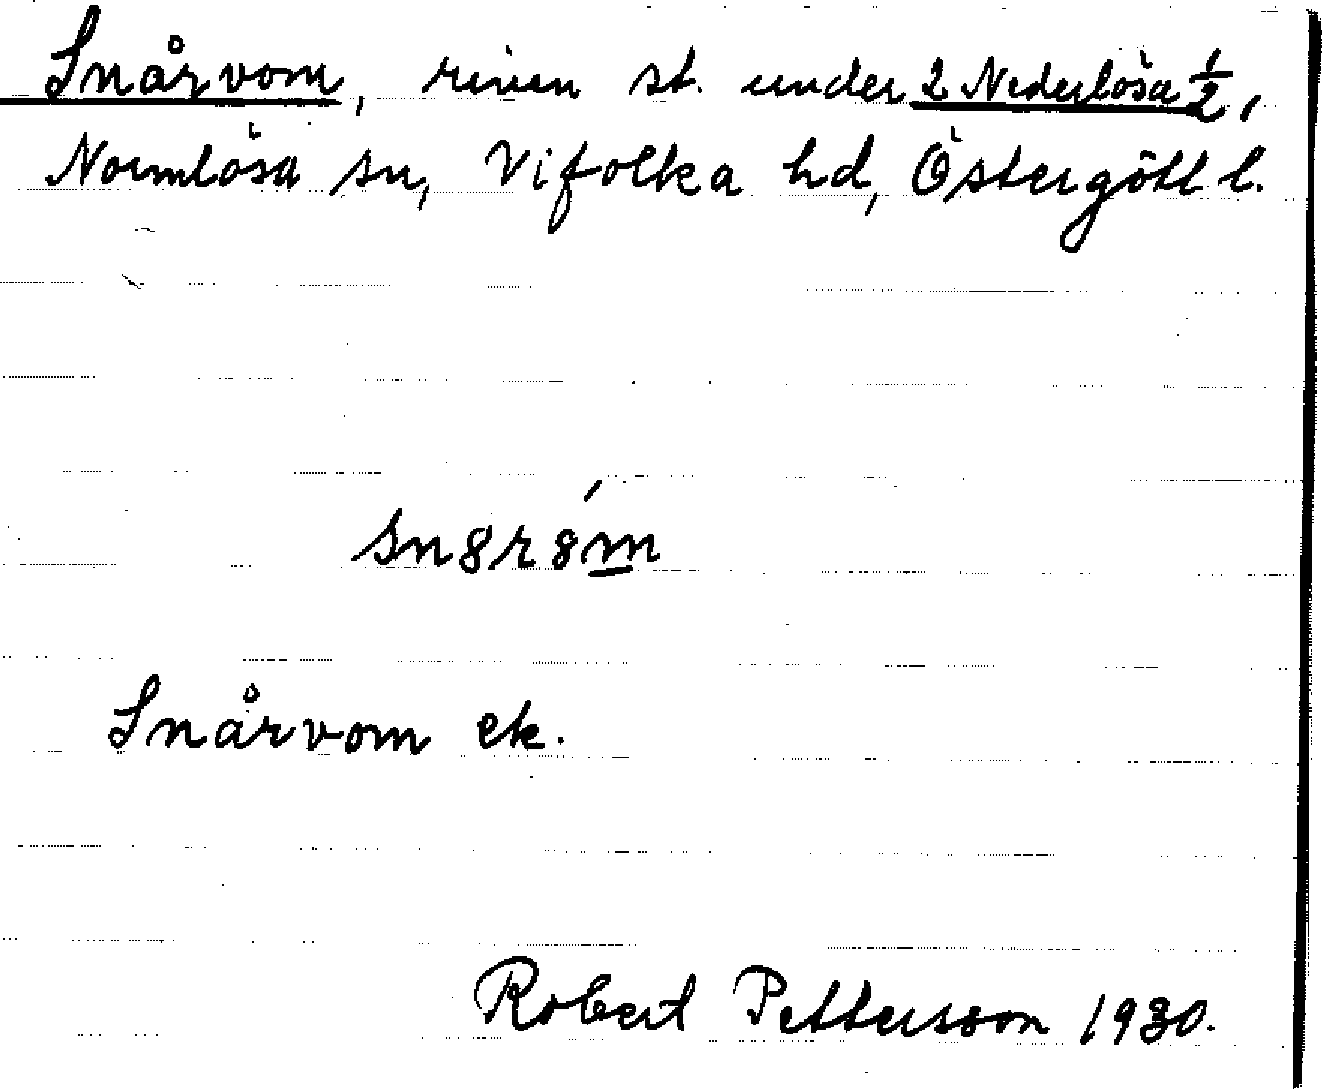 Snårvom, riven st. under 2 Nederlösa ½,
Normlösa sn, Vifolka hd, Östergötl l.
sn8r8́m
Snårvom ek.
Robert Pettersson 1930.